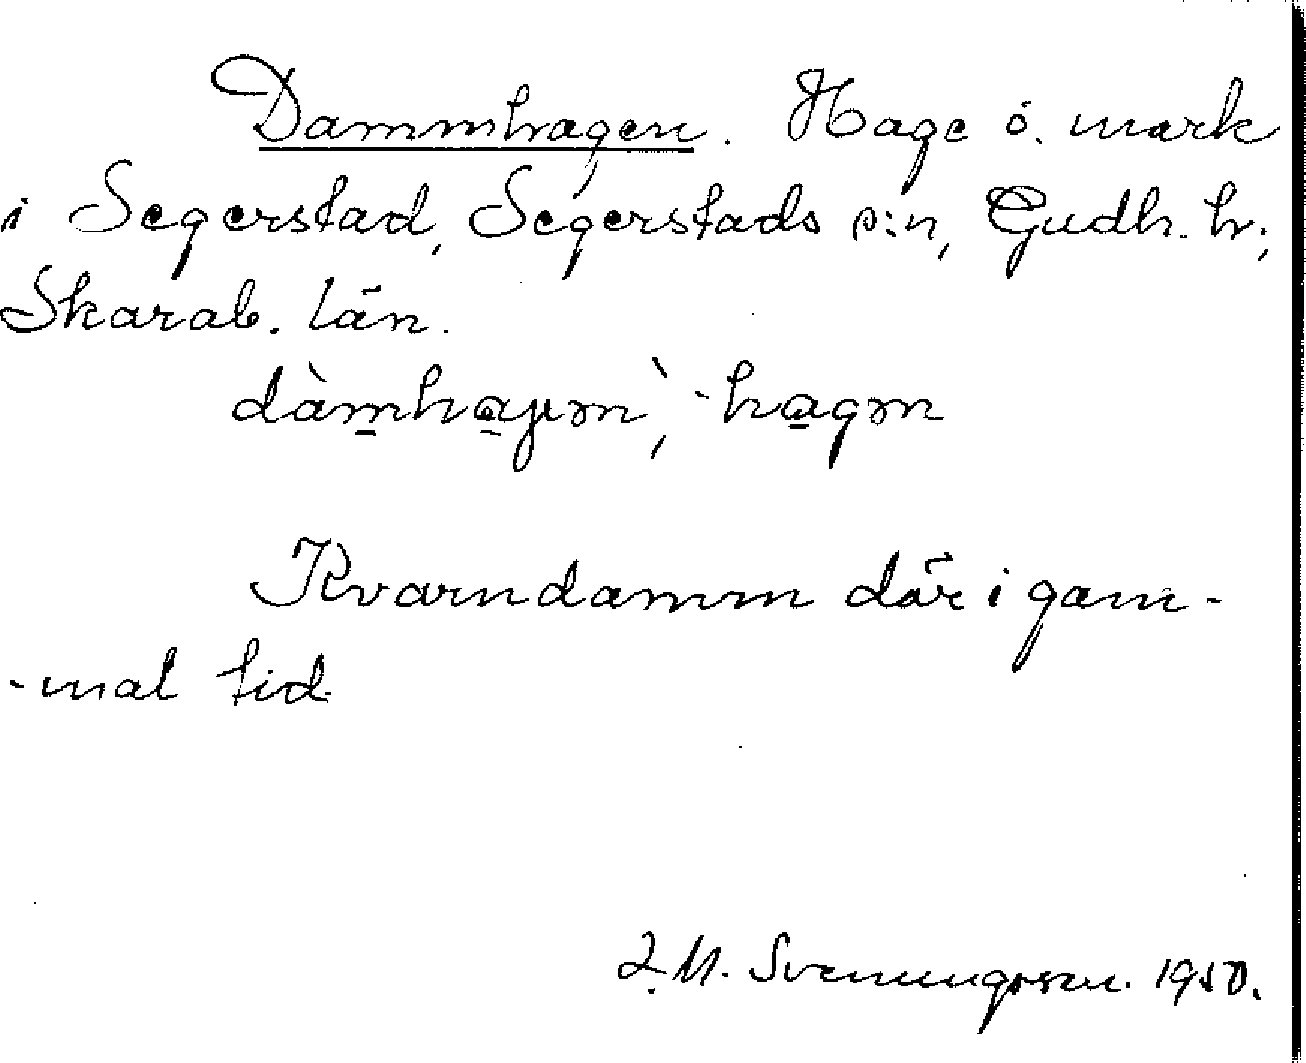 Dammhagen. Hage ö. mark
i Segerstad, Segerstads s:n, Gudh. hr.,
Skarab. län.
dàmhaɡən, -hagən
Kvarndamm där i gam-
-mal tid
M. Svenungsson. 1950.